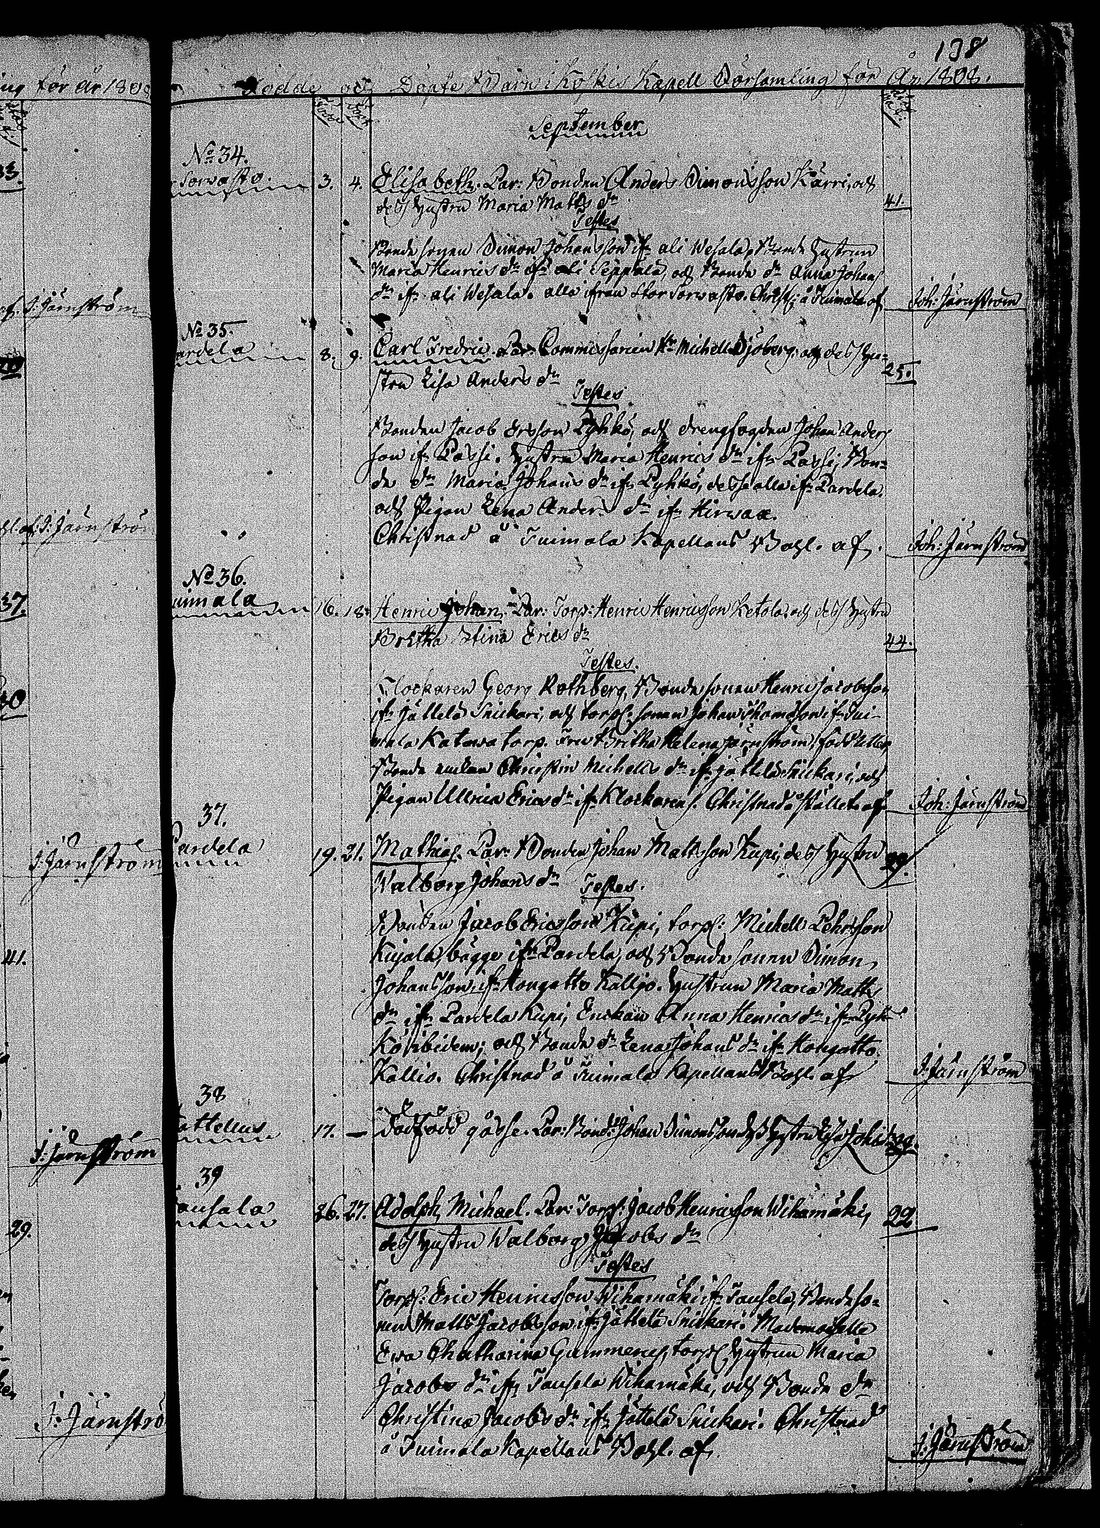 138
Födde och Döpte Barn i Koskis Kapell Församling för År 1808.
ng för år 1808
September
No 34.
Sorvasto.
3. 4. Elisabeth. Par: Bonden Anders Simonsson Kärri, och
dess hustru Maria Matts dr
41.
Testes
Bonde sonen Simon Johansson ifr ali Wesala, Bonde hustrun
Maria Henrics dr ifr ali Seppälä, och Bonde dr Anna Johans
dr ifr ali Wesala. alla ifrån Stor Sorvasto. Christ: å Tuimala af
Joh: Järnström
J: Järnström
No 35.
ardela
8. 9. Carl Fredric. Par: Commissarien Hr Michell Sjöberg, och dess hu-
stru Lisa Anders dr
25.
Testes
Bonden Jacob Ersson Pyhkö, och drengfogden Johan Anders
son ifr Passi. hustru Maria Henrics dr ifr Passi, Bon-
de dr Maria Johans dr ifr Pyhkö, desse alla ifr Pardela.
och Pigan Lena Anders dr ifr Hirwax.
Christnad å Tuimala Kapellans Bohl. af
Joh: Järnström
J: Järnströ
No 36.
uimala
16. 18. Henric Johan. Par: Torp: Henric Henricsson Ketola, och dess hustru
Bretha Stina Erics dr
44.
37.
Testes.
Klockaren Georg Rothberg, Bonde sonen Henric Jacobsson
ifr Jättelä Snickari, och torp: sonen Johan Thomasson ifr Tui-
mala Katawa torp. Fru Britha Helena Järnström, född
Bonde enckan Christin Michells dr ifr Jättelä Snickari, och
Pigan Ullrica Erics dr ifr Klockaren. Christnad å stället af
Joh: Järnström
37.
Pardela
19. 21. Mathias. Par: Bonden Johan Mattsson Kupi, dess hustru
Walborg Johans dr
29.
J: Järnström
Testes.
Bonden Jacob Ericsson Kupi, torp: Michell Pehrsson
Kujala, bägge ifr Pardela, och Bonde sonen Simon
Johansson ifr Hongatto Kallio. hustrun Maria Matts
dr ifr Pardela Kupi, Enckan Anna Henrics dr ifr Pyh-
kö ibidem; och Bonde dr Lena Johans dr ifr Hongatto
Kallio. Christnad å Tuimala Kapellans Bohl. af
J: Järnström
41.
38
attelus
17. — Dödfödd gåsse. Par: Bond: Johan Simonsson dess hustru Lisa Johans
39.
J: Järnström
39
ausala
26. 27. Adolph Michael. Par: Torp: Jacob Henricsson Wihamäki,
dess hustru Walborg Jacobs dr
22
29.
Testes
Torp: Eric Henricsson Wihamäki ifr Tausela, Bonde so-
nen Matts Jacobsson ifr Jättelä Snickari. Mademoiselle
Ewa Chatharina Gummerus, torp: hustrun Maria
Jacobs dr ifr Tausela Wihamäki, och Bonde dr
Christina Jacobs dr ifr Jättelä Snickari. Christnad
å Tuimala Kapellans Bohl. af
J: Järnström
J: Järnströ